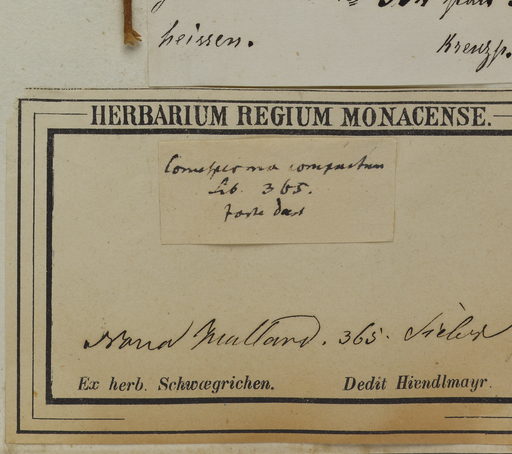 heissen.
Kreuzp.
HERBARIUM REGIUM MONACENSE.
Comesperma compactum
Lb. 365.
forte dest
Nova Holland. 365. Sieber
Ex herb. Schwœgrichen. Dedit Hiendlmayr.